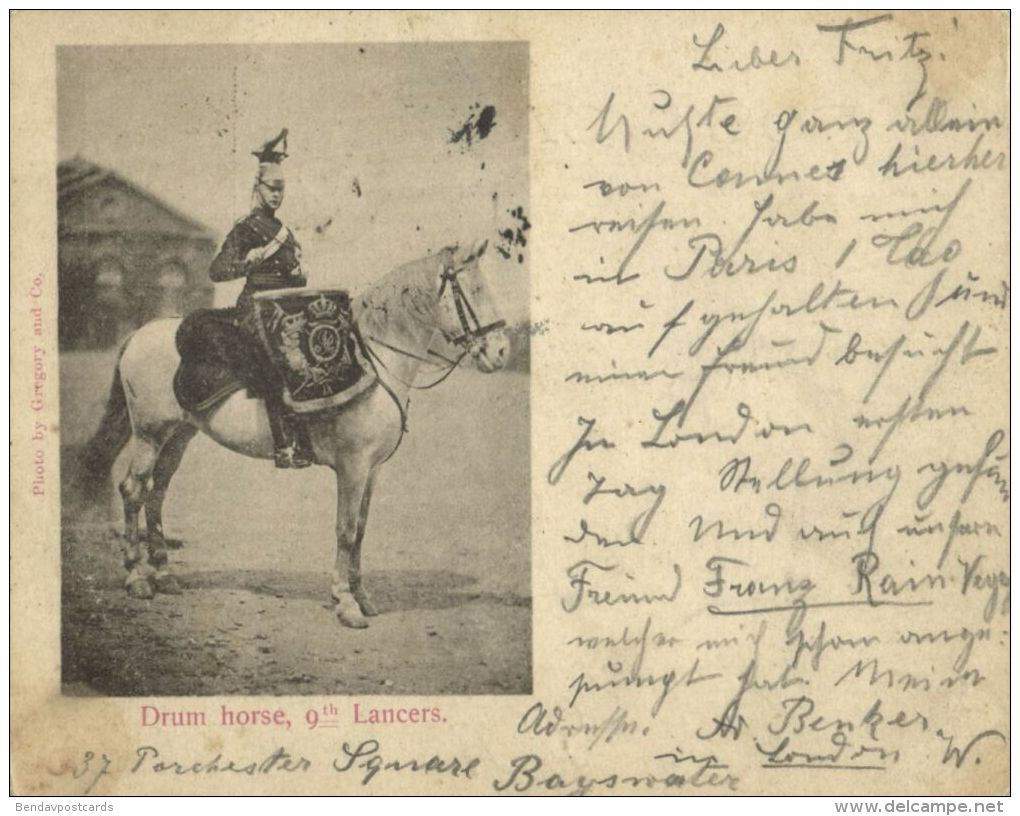 Photo by Gregory and Co.
Drum horse, 9th Lancers.
Lieber Fritz!
Mußte ganz allein
von Cannes hierher
reisen habe mich
in Paris 1 Tag
aufgehalten und
einen Freund besucht
In London ersten
Tag Stellung gefun
den Und auch unsern
Freund Franz Rain
welcher mich schon ange:
pumpt hat. Meine
Adresse. Benker
37 Porchester Square Bayswater
in London W.
Bendavpostcards
delcampe.net